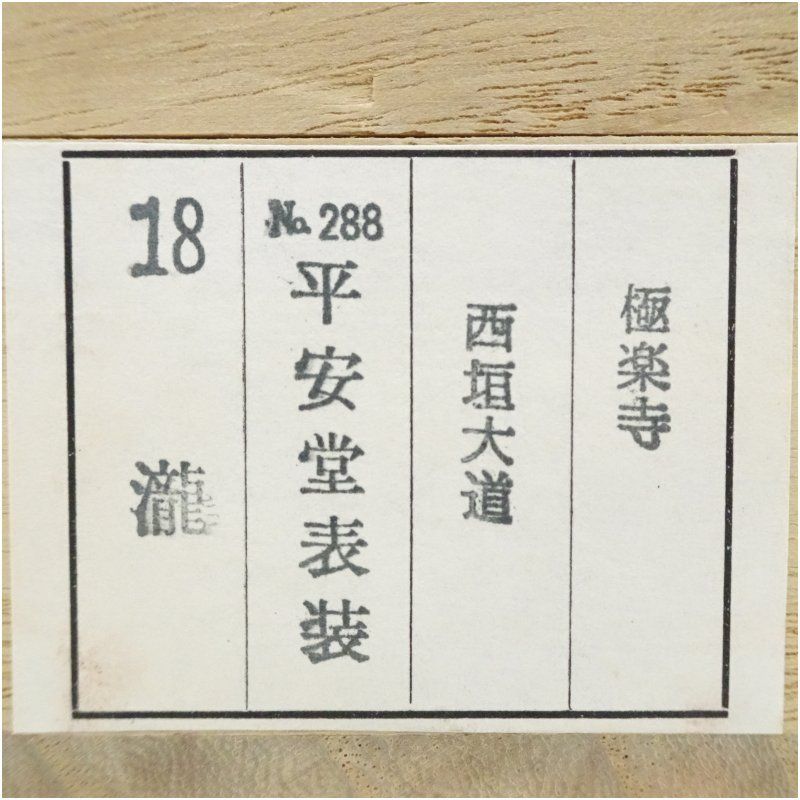 極楽寺
西垣大道
No. 288
平安堂表装
18
瀧